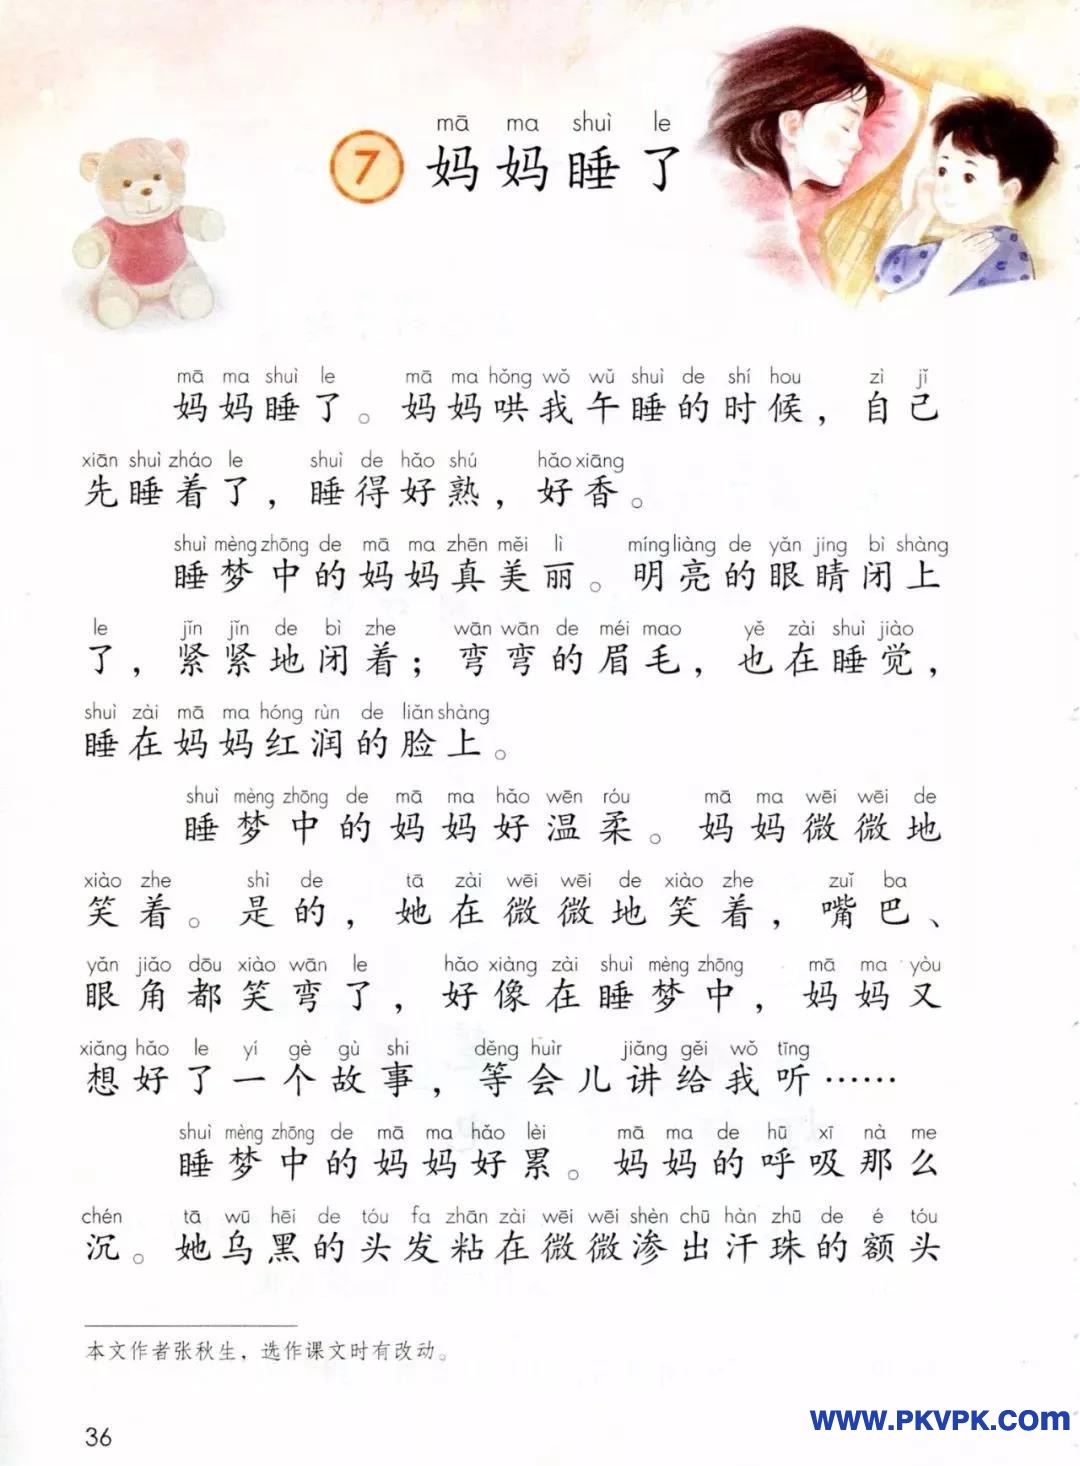 mā ma shuì le
7 妈妈睡了
mā ma shuì le mā ma hǒng wǒ wǔ shuì de shí hou zì jǐ
妈妈睡了。妈妈哄我午睡的时候，自己
xiān shuì zháo le shuì de hǎo shú hǎo xiāng
先睡着了，睡得好熟，好香。
shuì mèng zhōng de mā ma zhēn měi lì míng liàng de yǎn jing bì shàng
睡梦中的妈妈真美丽。明亮的眼睛闭上
le jǐn jǐn de bì zhe wān wān de méi mao yě zài shuì jiào
了，紧紧地闭着；弯弯的眉毛，也在睡觉，
shuì zài mā ma hóng rùn de liǎn shàng
睡在妈妈红润的脸上。
shuì mèng zhōng de mā ma hǎo wēn róu mā ma wēi wēi de
睡梦中的妈妈好温柔。妈妈微微地
xiào zhe shì de tā zài wēi wēi de xiào zhe zuǐ ba
笑着。是的，她在微微地笑着，嘴巴、
yǎn jiǎo dōu xiào wān le hǎo xiàng zài shuì mèng zhōng mā ma yòu
眼角都笑弯了，好像在睡梦中，妈妈又
xiǎng hǎo le yí gè gù shi děng huìr jiǎng gěi wǒ tīng
想好了一个故事，等会儿讲给我听……
shuì mèng zhōng de mā ma hǎo lèi mā ma de hū xī nà me
睡梦中的妈妈好累。妈妈的呼吸那么
chén tā wū hēi de tóu fa zhān zài wēi wēi shèn chū hàn zhū de é tóu
沉。她乌黑的头发粘在微微渗出汗珠的额头
本文作者张秋生，选作课文时有改动。
36
www.PKVPK.com